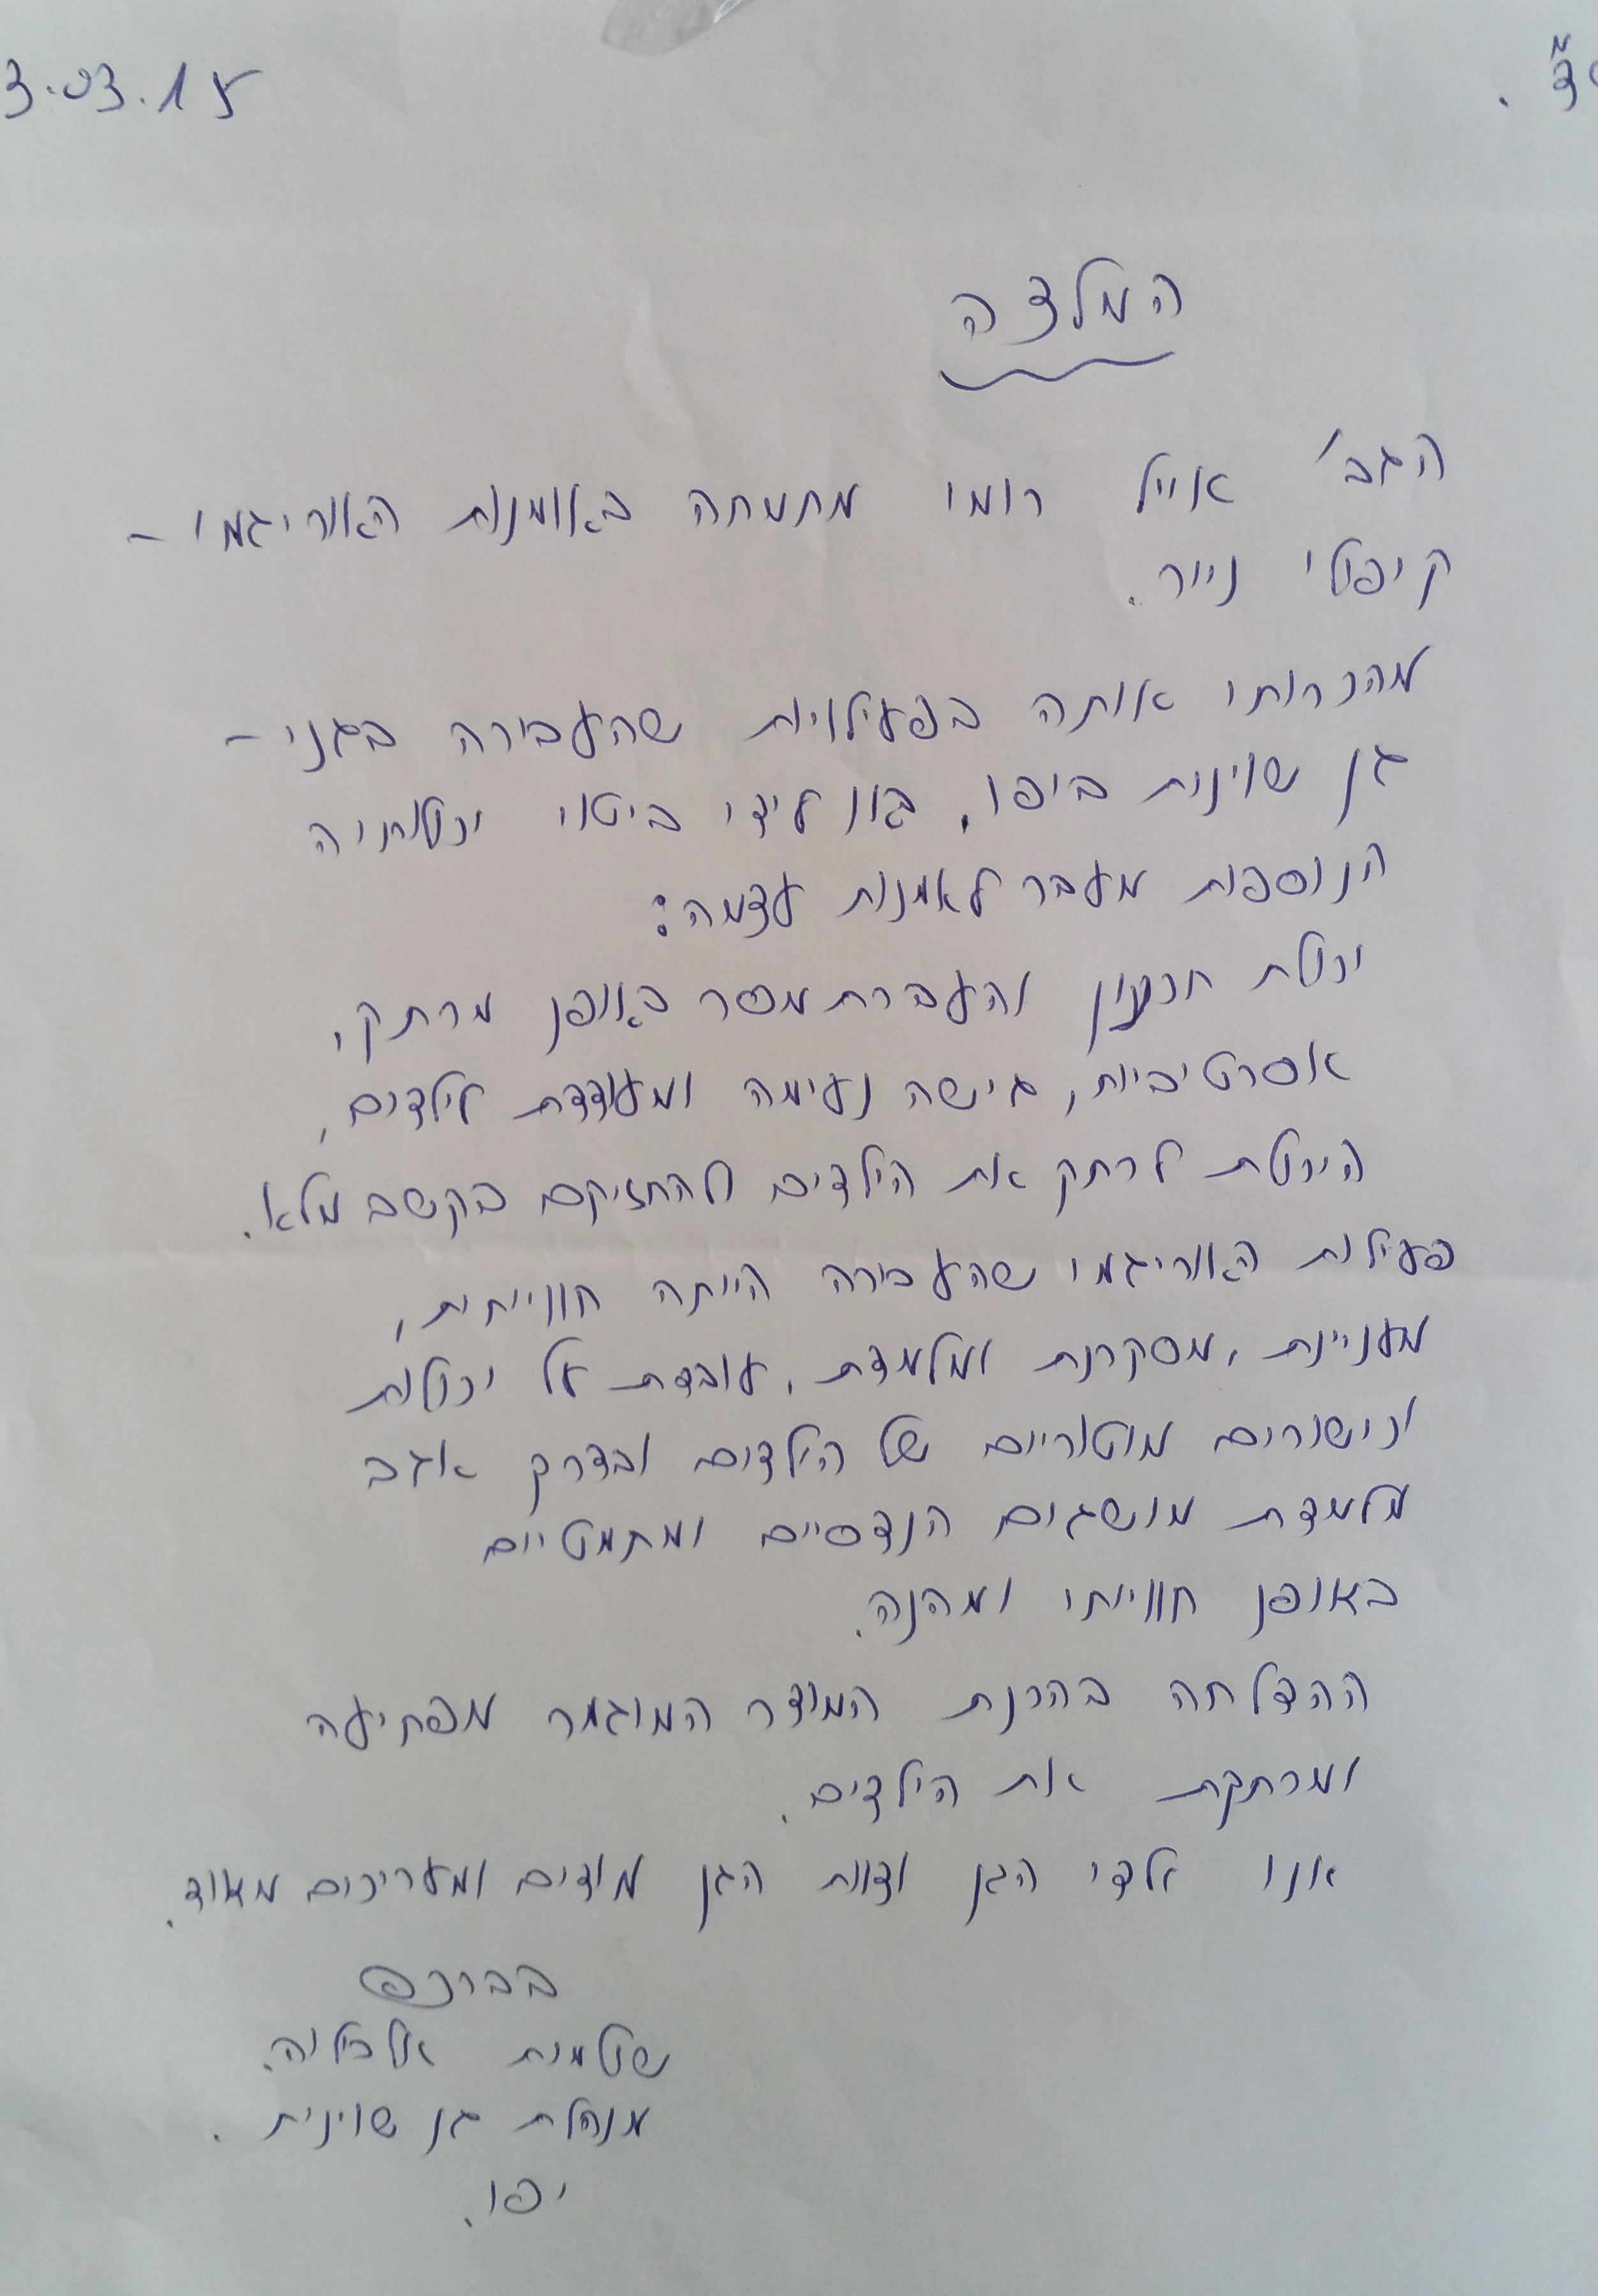 בס"ד.
3.03.15
המלצה
הגב' אייל רומי מתמחה באומנות האוריגמי -
קיפולי נייר.
מהכרותי אותה בפעילויות שהעבירה בגני -
גן שוינית ביפו, באו לידי ביטוי יכולותיה
הנוספות מעבר לאמנות עצמה:
יכולת תכנון והעברת מסר באופן מרתק,
אסרטיביות, גישה נעימה ומעודדת לילדים,
היכולת לרתק את הילדים ולהחזיקם בקשב מלא.
פעילות האוריגמי שהעבירה הייתה חווייתית,
מעניינת, מסקרנת ומלמדת, עובדת על יכולות
וכישורים מוטוריים של הילדים ובדרך אגב
מלמדת מושגים הנדסיים ומתמטיים
באופן חוויתי ומהנה.
ההצלחה בהכנת המוצר המוגמר מפתיעה
ומרתקת את הילדים.
אנו ילדי הגן וצוות הגן מודים ומעריכים מאוד.
בברכה
שולמית אלבילוה.
מנהלת גן שוינית.
יפו.